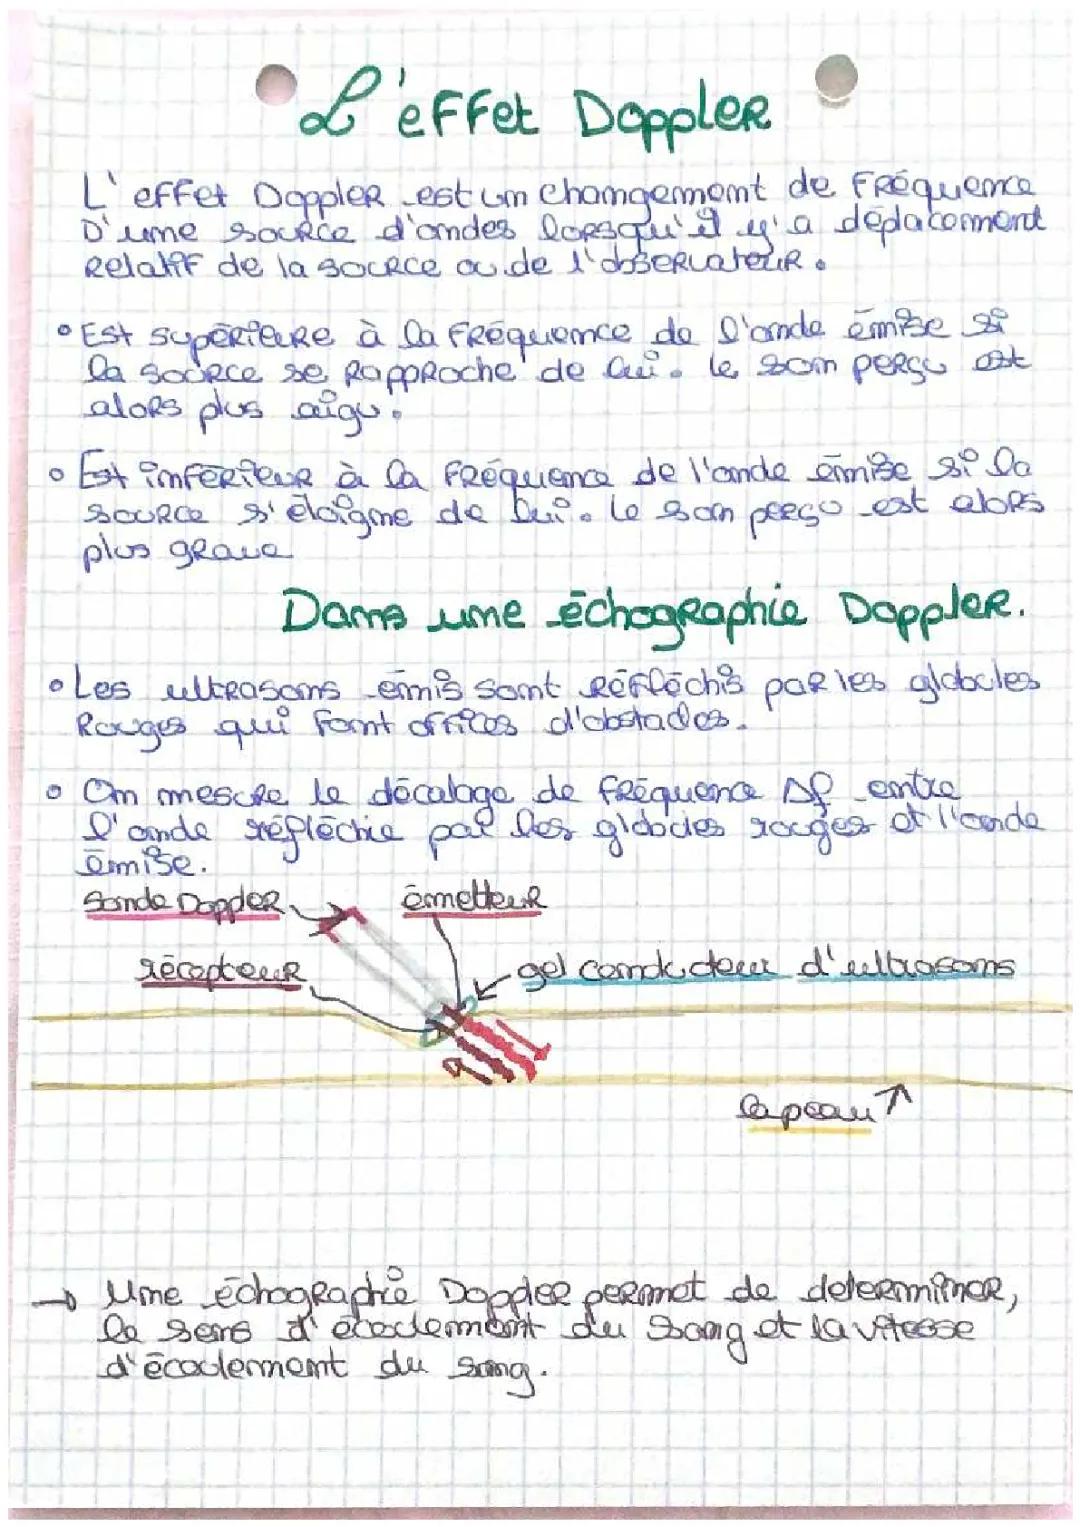 L'effet Doppler
L'effet Doppler est un changement de fréquence
D'une source d'ondes lorsqu'il y'a déplacement
Relatif de la source ou de l'observateur.
• Est supérieure à la fréquence de l'onde émise si
la source se rapproche de lui. le son perçu est
alors plus aigu.
• Est inférieur à la fréquence de l'onde émise si la
source s'éloigne de lui. le son perçu est alors
plus grave
Dans une échographie Doppler.
• Les ultrasons émis sont réfléchis par les globules
Rouges qui font offices d'obstacles.
• On mesure le décalage de fréquence Δf entre
l'onde réfléchie par les globules rouges et l'onde
émise.
Sonde Doppler
émetteur
récepteur
gel conducteur d'ultrasons
la peau
→ Une échographie Doppler permet de determiner,
le sens d'écoulement du sang et la vitesse
d'écoulement du sang.